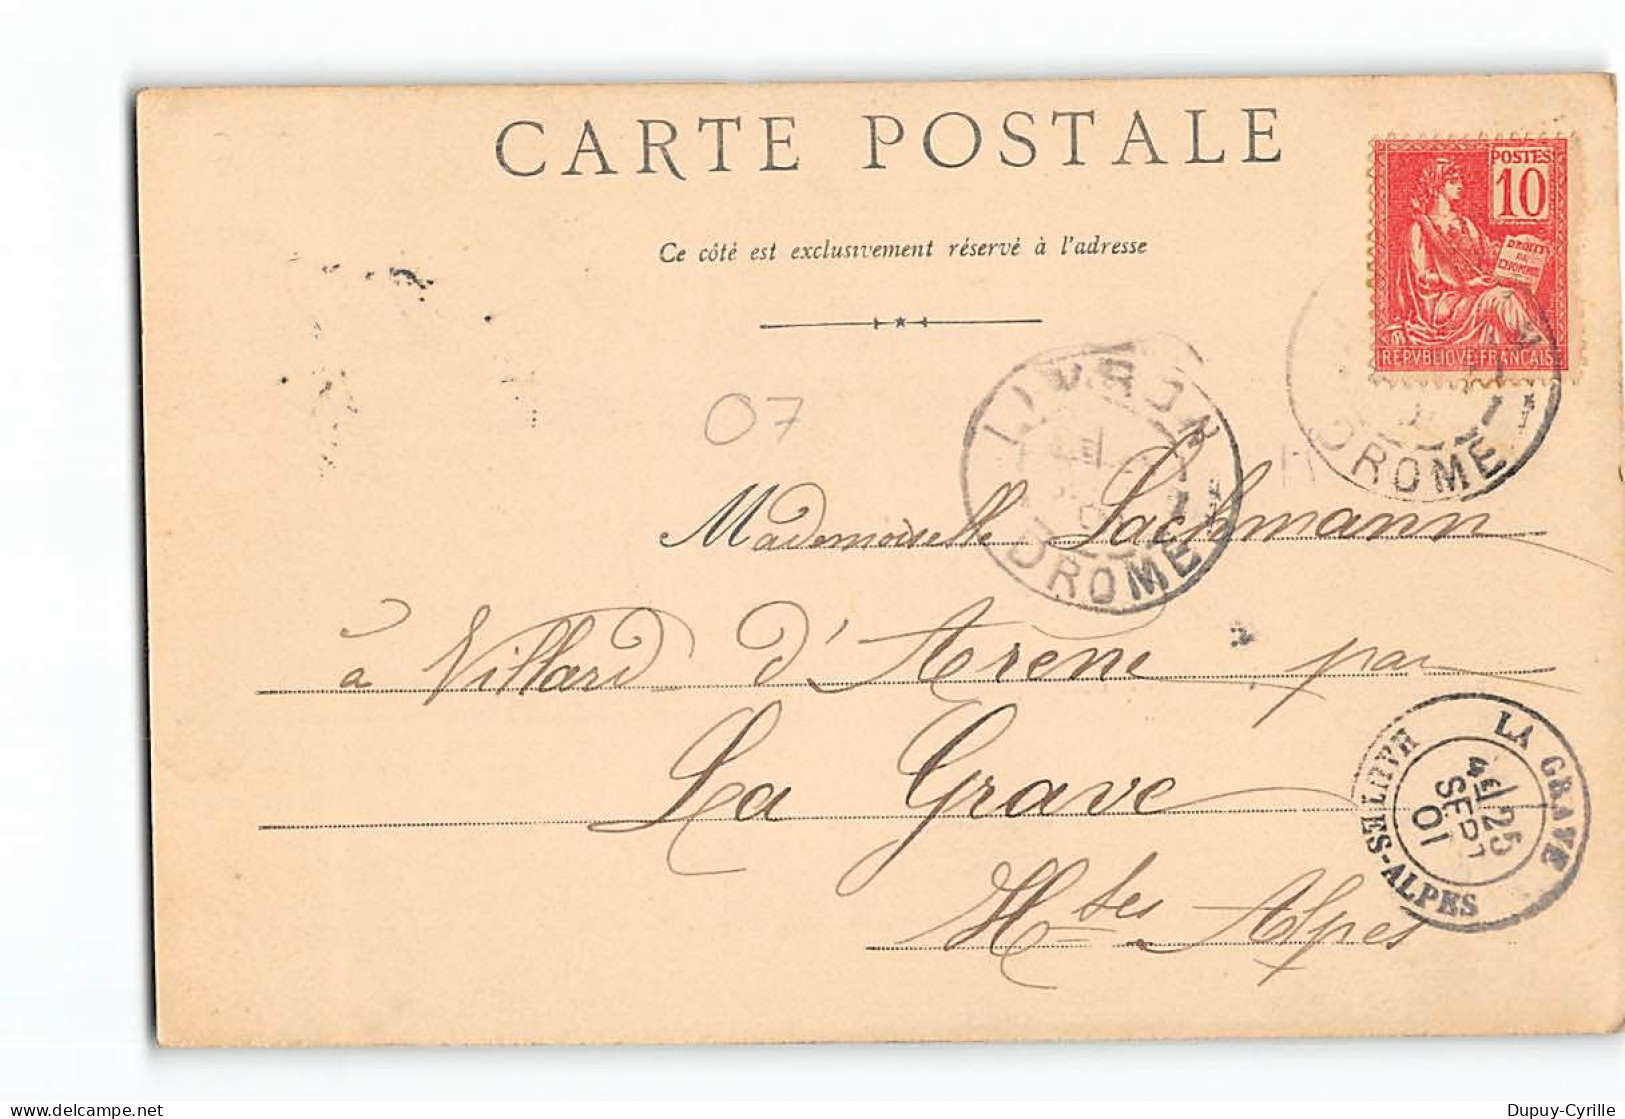 CARTE POSTALE
POSTES
10
DROITS
DE
L'HOMME
REPVBLIQVE FRANCAISE
Ce côté est exclusivement réservé à l'adresse
07
LIVRON
DROME
DROME
Mademoiselle Lachmann
à Villard d'Arène par
La Grave
Htes Alpes
LA GRAVE
4E 25
SEPT
01
HAUTES-ALPES
Dupuy-Cyrille